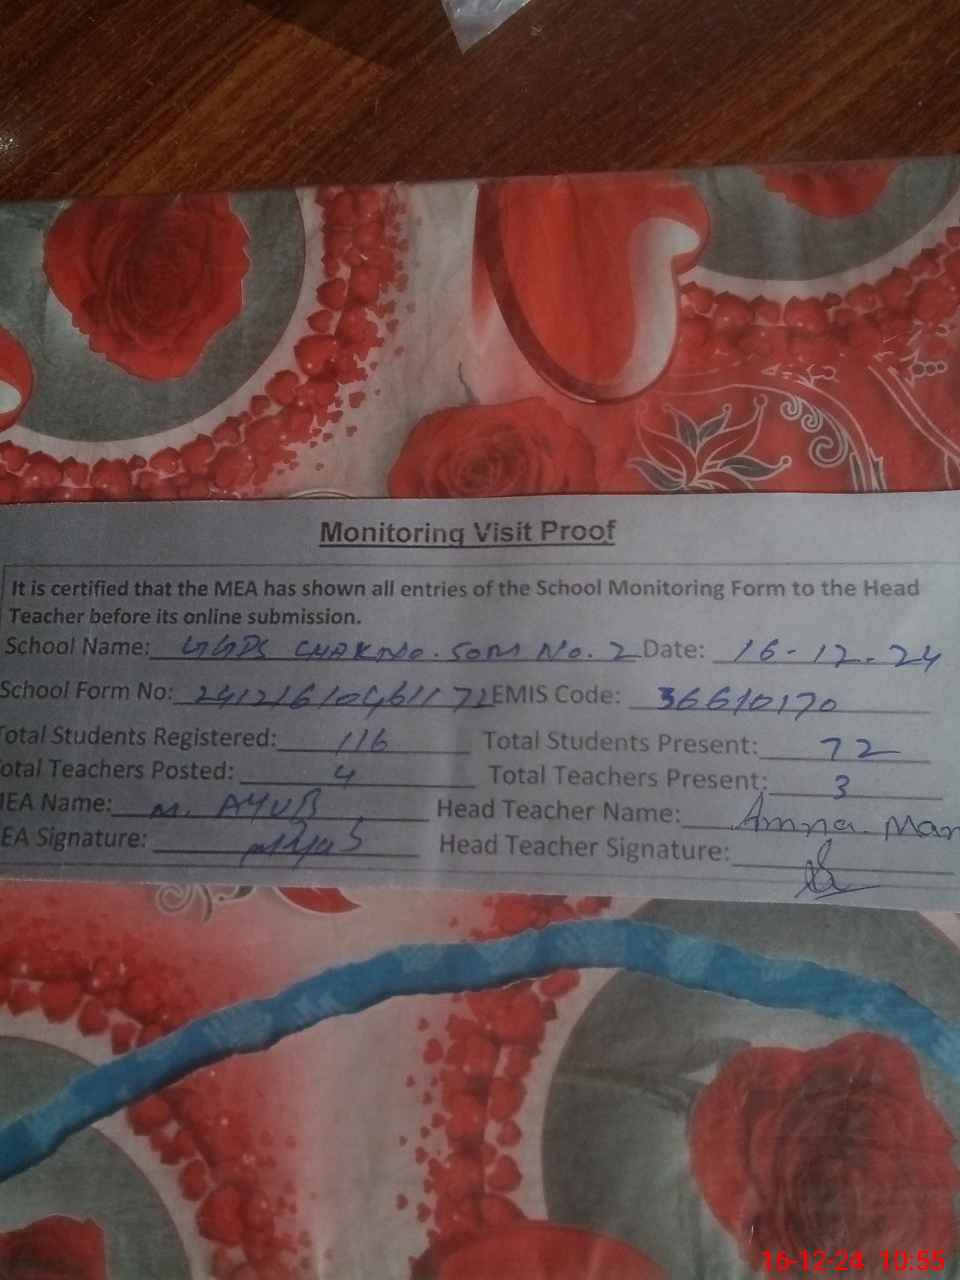 Monitoring Visit Proof
It is certified that the MEA has shown all entries of the School Monitoring Form to the Head
Teacher before its online submission.
School Name: GGPS CHAK No. 50M No. 2 Date: 16-12-24
School Form No: EMIS Code: 36610170
Total Students Registered: 116 Total Students Present: 72
Total Teachers Posted: 4 Total Teachers Present: 3
MEA Name: M. AYUB Head Teacher Name: Amna Mar
EA Signature: Head Teacher Signature:
16-12-24 10:55